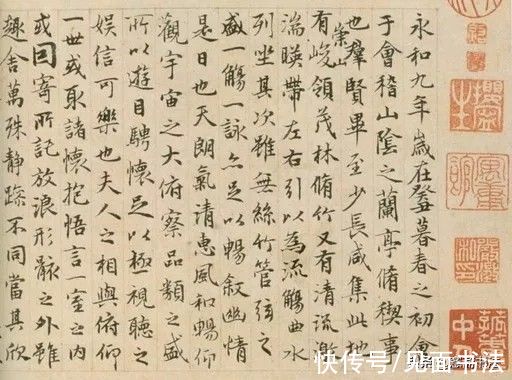 永和九年歲在癸丑暮春之初會
于會稽山陰之蘭亭脩稧事
也群賢畢至少長咸集此地
有崇山峻領茂林脩竹又有清流激
湍暎帶左右引以為流觴曲水
列坐其次雖無絲竹管弦之
盛一觴一詠亦足以暢敘幽情
是日也天朗氣清惠風和暢仰
觀宇宙之大俯察品類之盛
所以遊目騁懷足以極視聽之
娛信可樂也夫人之相與俯仰
一世或取諸懷抱悟言一室之內
或因寄所託放浪形骸之外雖
趣舍萬殊靜躁不同當其欣
快传号/见面书法